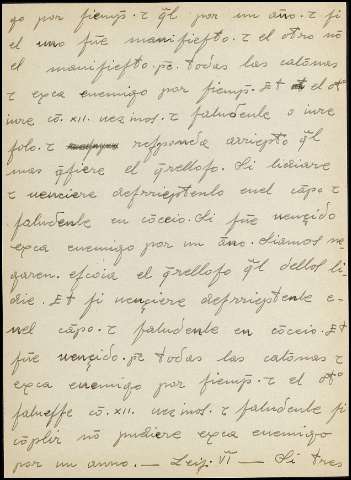 go por fiemp̄. τ q̄l por un año. τ fi
el uno fue manifiefto. τ el otro nō
el manifiefto. pe. todas las calōnas
τ exca enemigo por fiemp̄. Et el otº
iure cō. XII. uezinos. τ faludenle o iure
folo. τ refponda arriepto q̄l
mas q̄fiere el q̄rellofo. Si lidiare
τ uenciere defrrieptenlo enel cāpo τ
faludenle en cōceio. Si fue uençido
exca enemigo por un āno. Si amos ne-
garen. efcoia el q̄rellofo q̄l dellos li-
die. Et fi uençiere defrrieptenle e-
nel cāpo. τ faludenle en cōceio. Et
fue uençido. pe todas las calōnas τ
exca enemigo por fiemp̄. τ el otº
falueffe cō. XII. uezinos. τ faludenle fi
cōplir nō pudiere exca enemigo
por un anno. — Leig. VI — Si tres